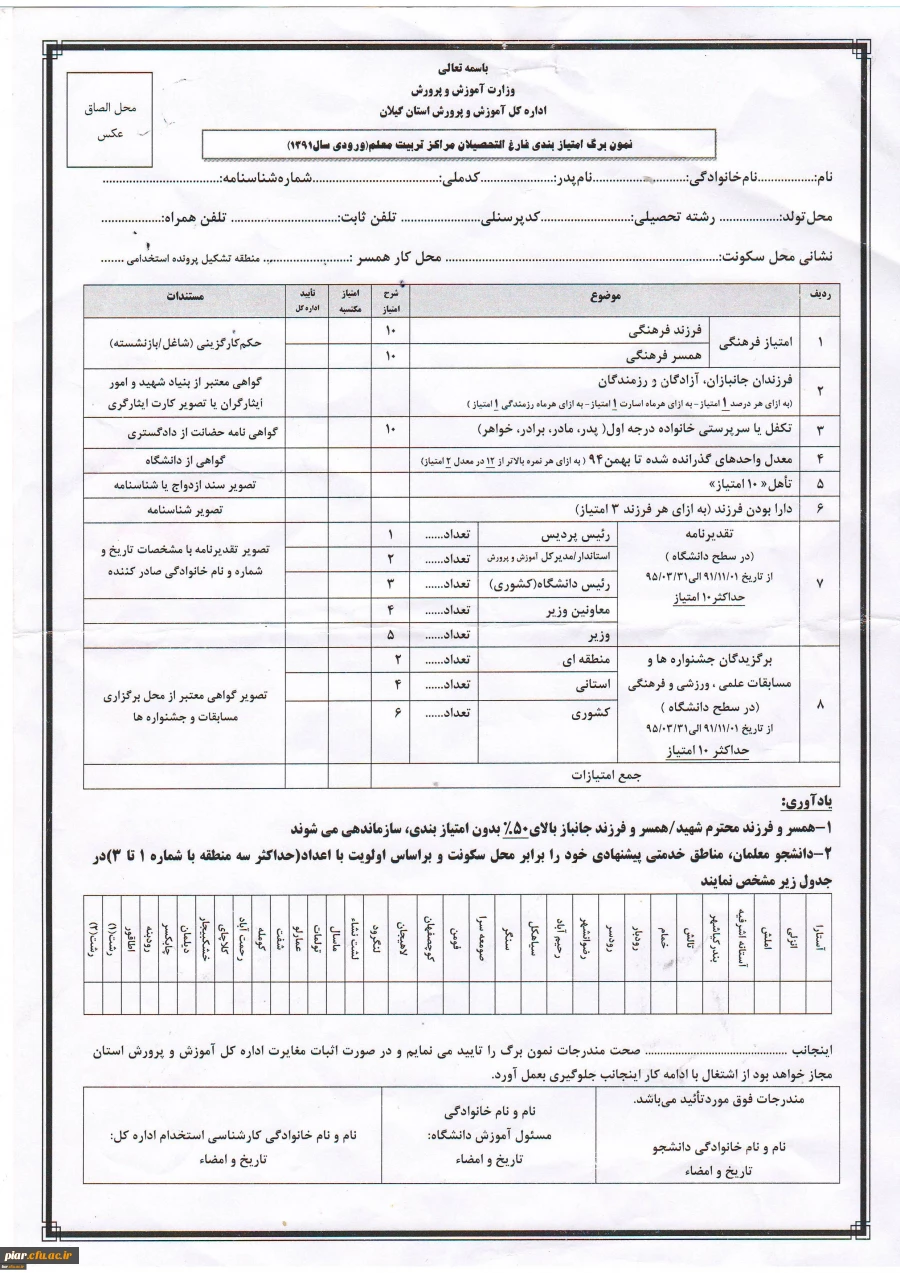 باسمه تعالی
وزارت آموزش و پرورش
اداره کل آموزش و پرورش استان گیلان
محل الصاق
عکس
نمون برگ امتیاز بندی فارغ التحصیلان مراکز تربیت معلم(ورودی سال۱۳۹۱)
نام:................نام خانوادگی:........................نام پدر:....................کدملی:................................شماره شناسنامه:..............................
محل تولد:................ رشته تحصیلی:......................کدپرسنلی.................... تلفن ثابت:........................... تلفن همراه:................
نشانی محل سکونت:................................................................ محل کار همسر :........................ منطقه تشکیل پرونده استخدامی .......
ردیف موضوع شرح امتیاز امتیاز مکتسبه تأیید اداره کل مستندات
۱ امتیاز فرهنگی فرزند فرهنگی ۱۰ حکم کارگزینی (شاغل/بازنشسته)
همسر فرهنگی ۱۰
۲ فرزندان جانبازان، آزادگان و رزمندگان گواهی معتبر از بنیاد شهید و امور
(به ازای هر درصد ۱ امتیاز- به ازای هرماه اسارت ۱ امتیاز- به ازای هرماه رزمندگی ۱ امتیاز ) ایثارگران یا تصویر کارت ایثارگری
۳ تکفل یا سرپرستی خانواده درجه اول( پدر، مادر، برادر، خواهر) ۱۰ گواهی نامه حضانت از دادگستری
۴ معدل واحدهای گذرانده شده تا بهمن۹۴ ( به ازای هر نمره بالاتر از ۱۲ در معدل ۲ امتیاز) گواهی از دانشگاه
۵ تأهل« ۱۰ امتیاز» تصویر سند ازدواج یا شناسنامه
۶ دارا بودن فرزند (به ازای هر فرزند ۳ امتیاز) تصویر شناسنامه
۷ تقدیرنامه
(در سطح دانشگاه )
از تاریخ ۹۱/۱۱/۰۱ الی۹۵/۰۳/۳۱
حداکثر ۱۰ امتیاز
رئیس پردیس تعداد...... ۱
استاندار/مدیرکل آموزش و پرورش تعداد...... ۲
رئیس دانشگاه(کشوری) تعداد...... ۳
معاونین وزیر تعداد...... ۴
وزیر تعداد...... ۵
تصویر تقدیرنامه با مشخصات تاریخ و
شماره و نام خانوادگی صادر کننده
۸ برگزیدگان جشنواره ها و
مسابقات علمی ، ورزشی و فرهنگی
(در سطح دانشگاه )
از تاریخ ۹۱/۱۱/۰۱ الی۹۵/۰۳/۳۱
حداکثر ۱۰ امتیاز
منطقه ای تعداد...... ۲
استانی تعداد...... ۴
کشوری تعداد...... ۶
تصویر گواهی معتبر از محل برگزاری
مسابقات و جشنواره ها
جمع امتیازات
یادآوری:
۱-همسر و فرزند محترم شهید/همسر و فرزند جانباز بالای۵۰٪ بدون امتیاز بندی، سازماندهی می شوند
۲-دانشجو معلمان، مناطق خدمتی پیشنهادی خود را برابر محل سکونت و براساس اولویت با اعداد(حداکثر سه منطقه با شماره ۱ تا ۳)در
جدول زیر مشخص نمایند
آستارا انزلی املش آستانه اشرفیه بندرکیاشهر تالش خمام رودبار رودسر رضوانشهر رحیم آباد سیاهکل سنگر صومعه سرا فومن کوچصفهان لاهیجان لنگرود لشت نشاء ماسال تولمات عمارلو شفت کومله رحمت آباد کلاچای خشکبیجار دیلمان چابکسر رودبنه اطاقور رشت(۱) رشت(۲)
اینجانب ........................................ صحت مندرجات نمون برگ را تایید می نمایم و در صورت اثبات مغایرت اداره کل آموزش و پرورش استان
مجاز خواهد بود از اشتغال با ادامه کار اینجانب جلوگیری بعمل آورد.
مندرجات فوق موردتأئید می‌باشد.
نام و نام خانوادگی دانشجو
تاریخ و امضاء
نام و نام خانوادگی
مسئول آموزش دانشگاه:
تاریخ و امضاء
نام و نام خانوادگی کارشناسی استخدام اداره کل:
تاریخ و امضاء
piar.cfu.ac.ir